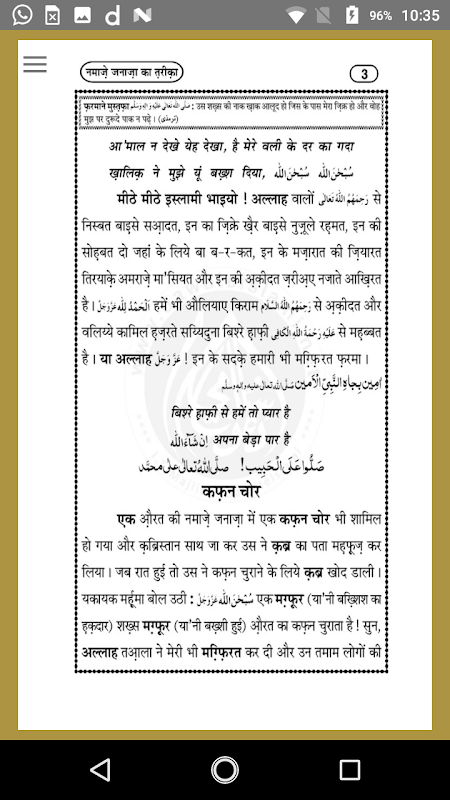 96% 10:35
नमाज़े जनाज़ा का त़रीक़ा
3
फ़रमाने मुस्त़फ़ा صلى الله تعالى عليه واله وسلم : उस शख़्स की नाक ख़ाक आलूद हो जिस के पास मेरा ज़िक्र हो और वोह
मुझ पर दुरूदे पाक न पढ़े । (ترمذی)
आ'माल न देखे येह देखा, है मेरे वली के दर का गदा
ख़ालिक़ ने मुझे यूं बख़्श दिया, سُبْحٰنَ اللّٰه سُبْحٰنَ اللّٰه
मीठे मीठे इस्लामी भाइयो ! अल्लाह वालों رَحِمَهُمُ اللّٰهُ تَعَالٰی से
निस्बत बाइसे सआ़दत, इन का ज़िक्रे ख़ैर बाइसे नुज़ूले रह़मत, इन की
सोह़बत दो जहां के लिये बा ब-र-कत, इन के मज़ारात की ज़ियारत
तिरयाक़े अमराज़े मा'सियत और इन की अ़क़ीदत ज़रीअ़ए नजाते आख़िरत
है । اَلْحَمْدُ لِلّٰه عَزَّوَجَلَّ हमें भी औलियाए किराम رَحِمَهُمُ اللّٰهُ السَّلَام से अ़क़ीदत और
वलिय्ये कामिल ह़ज़रते सय्यिदुना बिश्रे ह़ाफ़ी عَلَيْهِ رَحْمَةُ اللّٰهِ الْكَافِی से मह़ब्बत
है । या अल्लाह عَزَّوَجَلَّ ! इन के सदक़े हमारी भी मग़्फ़िरत फ़रमा ।
اٰمِين بِجَاهِ النَّبِيِّ الْاَمين صلى الله تعالى عليه واله وسلم
बिश्रे ह़ाफ़ी से हमें तो प्यार है
اِنْ شَآءَ اللّٰه अपना बेड़ा पार है
صَلُّوا عَلَى الْحَبِيب! صلَّى اللهُ تعالى على محمَّد
कफ़न चोर
एक औ़रत की नमाज़े जनाज़ा में एक कफ़न चोर भी शामिल
हो गया और क़ब्रिस्तान साथ जा कर उस ने क़ब्र का पता मह़फ़ूज़ कर
लिया । जब रात हुई तो उस ने कफ़न चुराने के लिये क़ब्र खोद डाली ।
यकायक मर्हूमा बोल उठी : سُبْحٰنَ اللّٰه عَزَّوَجَلَّ एक मग़्फ़ूर (या'नी बख़्शिश का
ह़क़दार) शख़्स मग़्फ़ूर (या'नी बख़्शी हुई) औ़रत का कफ़न चुराता है ! सुन,
अल्लाह तआ़ला ने मेरी भी मग़्फ़िरत कर दी और उन तमाम लोगों की